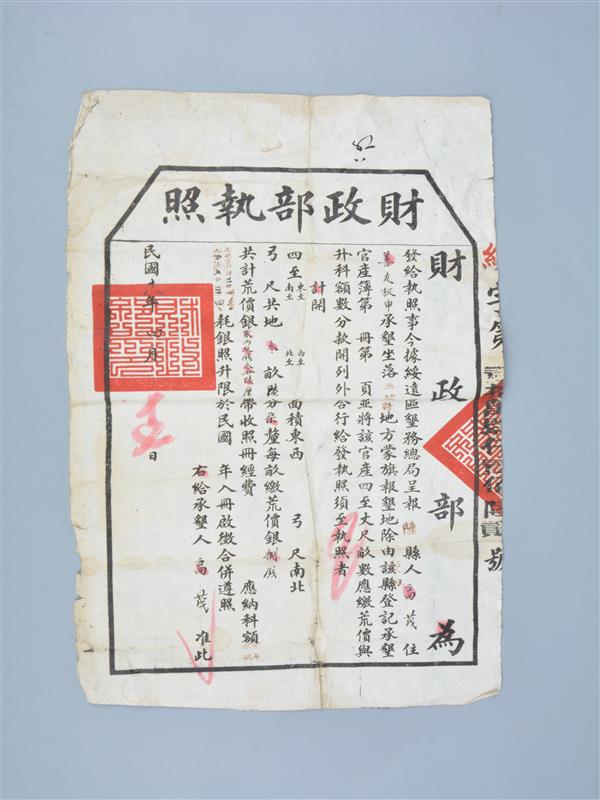 財政部執照
財政部為
發給執照事今據綏遠區墾務總局呈報薩縣人高茂住
板申承墾坐落地方蒙旗報墾地除由該縣登記承墾
官產簿第冊第頁並將該官產四至丈尺畝數應繳荒價與
升科額數分款開列外合行給發執照須至執照者
計開
四至東至南至西至北至面積東西弓尺南北
弓尺共地畝分釐每畝繳荒價銀
共計荒價銀帶收照冊經費應納科額
耗銀照升限於民國年入冊啟徵合併遵照
右給承墾人高茂准此
民國十八年四月日
字第
號